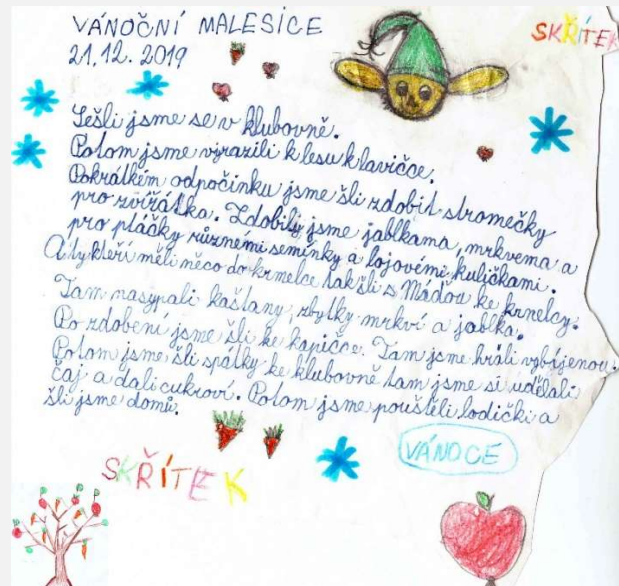 VÁNOČNÍ MALESICE
21.12.2019
SKŘÍTEK
Sešli jsme se v klubovně.
Potom jsme vyrazili k lesu k lavičce.
Pokrátkém odpočinku jsme šli zdobit stromečky
pro zvířátka. Zdobily jsme jablkama, mrkvema a
pro ptáčky různémi semínky a lojovémi kuličkami.
A ty kteří měli něco do krmelce tak šli s Máďou ke krmelcy.
Tam nasypali kaštany, zbytky mrkví a jablka.
Po zdobení jsme šli ke kapičce. Tam jsme hráli vybíjenou.
Potom jsme šli spátky ke klubovně tam jsme si udělali
čaj a dali cukroví. Potom jsme pouštěli lodički a
šli jsme domů.
VÁNOCE
SKŘÍTEK